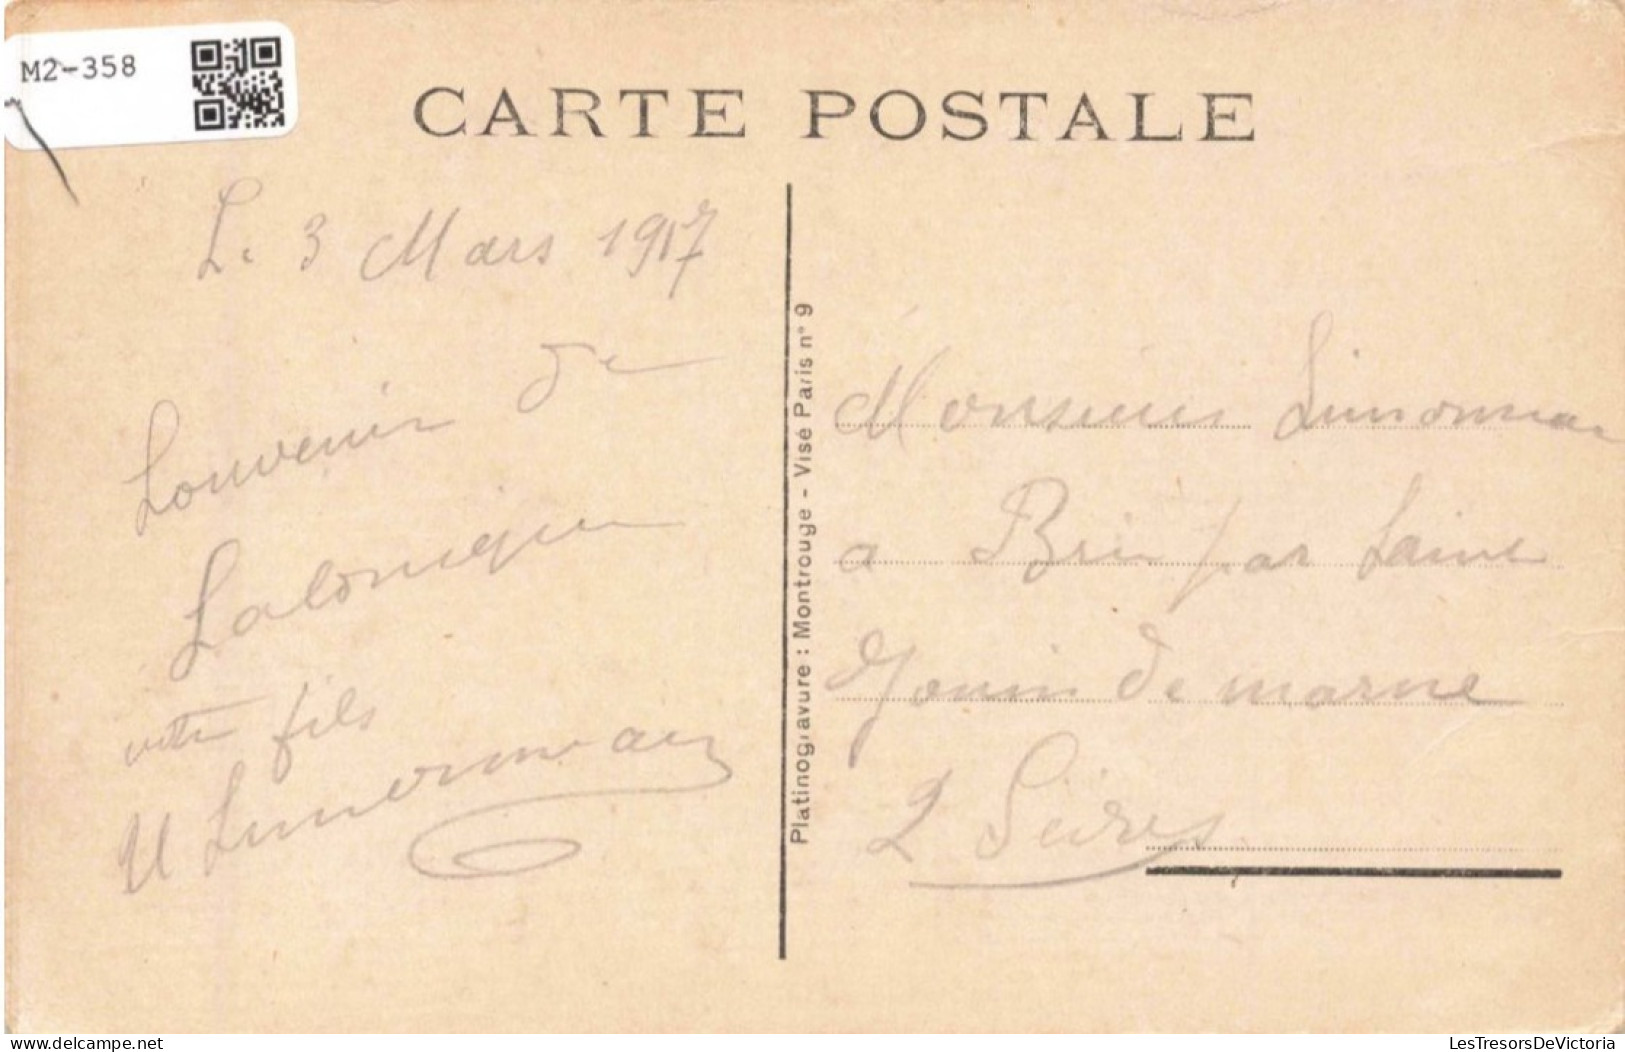 M2-358
CARTE POSTALE
Le 3 Mars 1917
Souvenir de
Salonique
votre fils
Limonneau
Platinogravure : Montrouge - Visé Paris n° 9
Monsieur Limonneau
a Brie par Saint
Jouin de marne
2 Sèvres
M2-358
LesTresorsDeVictoria